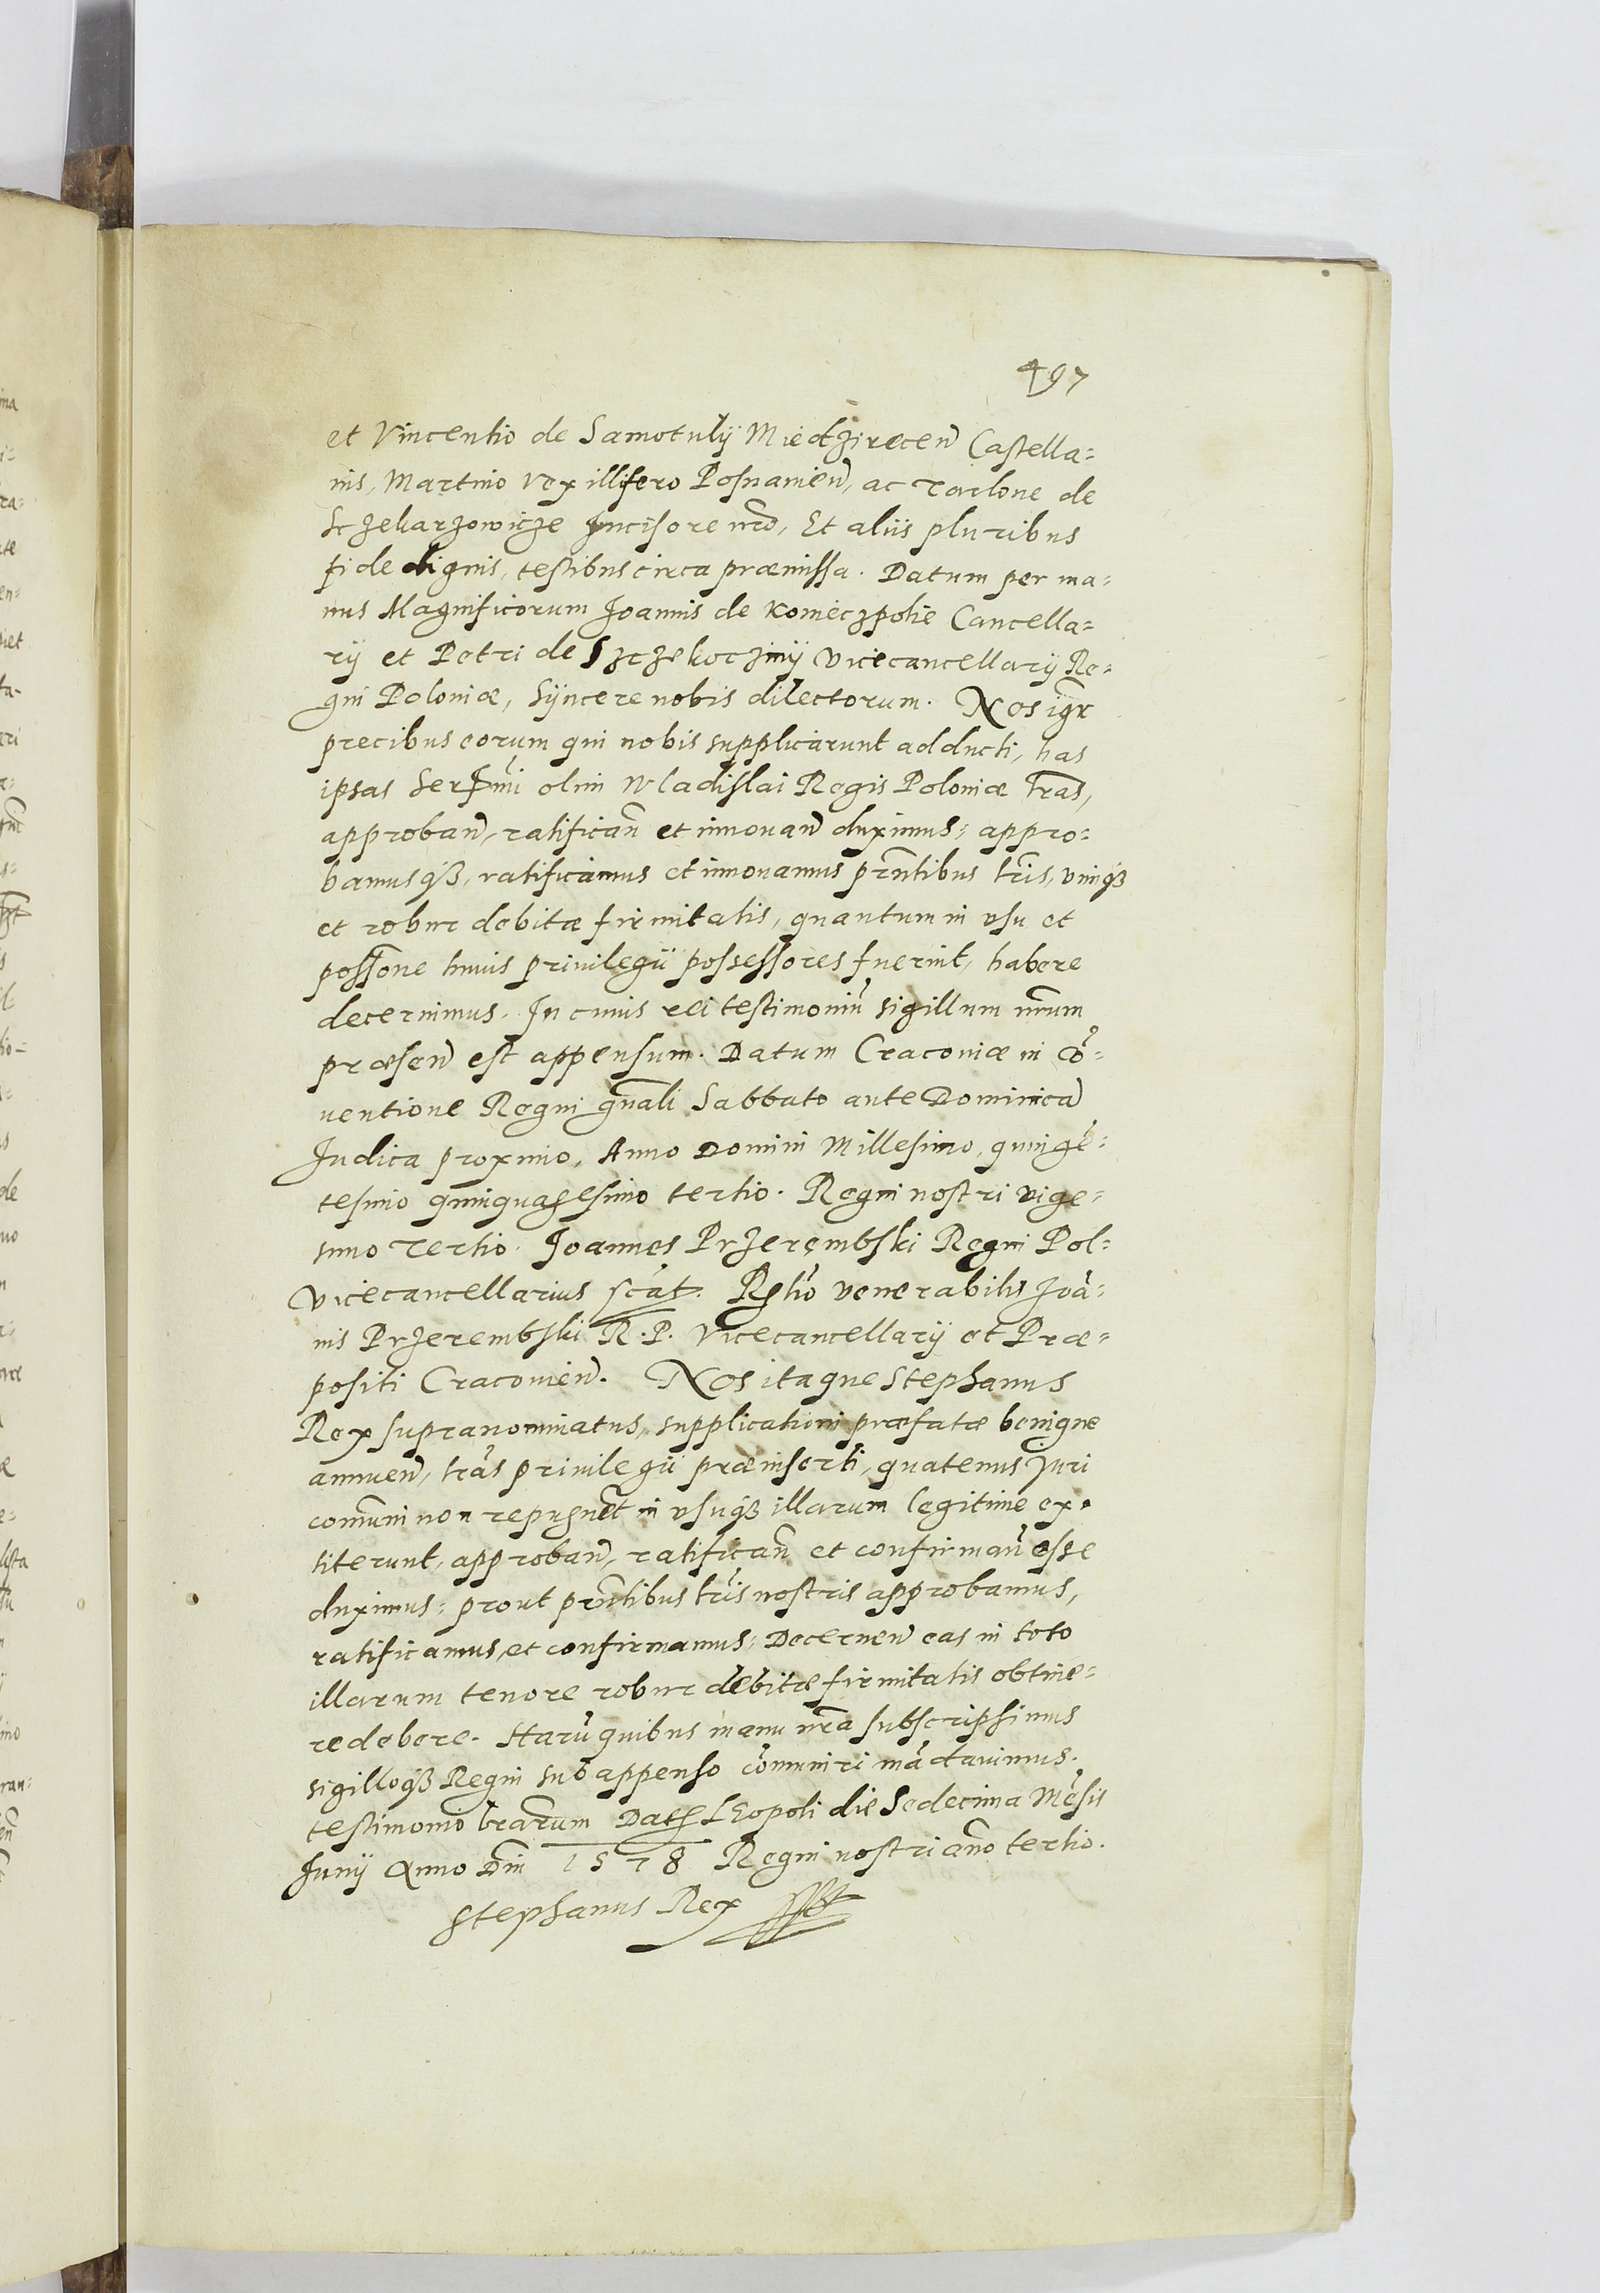 497
et Vincentio de Samotulÿ Miedzirecen̄ Castella=
nis, Martino Vexillifero Posnanien̄, ac Tarlone de
Sczekarzowicze Incisore nrō, Et aliis pluribus
fide dignis, testibus circa præmissa. Datum per ma=
nus Magnificorum Joannis de Konieczpolie Cancella=
rij et Petri de Szczekoczinij Vicecancellarij Re=
gni Poloniæ, sÿncere nobis dilectorum. Nos igr̄
precibus eorum qui nobis supplicarunt adducti, has
ipsas Serm̄i olim Wladislai Regis Poloniæ lr̄as,
approban̄, ratifican̄ et innouan̄ duximus: appro=
bamusqȝ, ratificamus et innouamus prn̄tibus lr̄is, vimqȝ
et robur debitæ firmitatis, quantum in vsu et
possōne huius priuilegii possessores fuerint, habere
decernimus. In cuius rei testimoniū sigillum nr̄um
præsen̄ est appensum. Datum Cracoviæ in cō=
uentione Regni gn̄ali Sabbato ante Dominicā
Judica proximo, Anno Domini Millesimo, quingē=
tesimo quinquagesimo tertio. Regni nostri vige=
simo tertio. Joannes Przerembski Regni Pol=
Vicecancellarius scāt. Rel̄io venerabilis Joā=
nis Przerembski R. P. Vicecancellarij et Præ=
positi Cracovien̄. Nos itaque Stephanus
Rex supranominatus, supplicationi præfatæ benigne
annuen̄, lr̄as priuilegii præinserti, quatenus Juri
comūni non repugnēt in vsuqȝ illarum legitime ex=
titerunt, approban̄, ratifican̄ et confirman̄ esse
duximus: prout prn̄tibus lr̄is nostris approbamus,
ratificamus, et confirmamus: Decernen̄ eas in toto
illarum tenore robur debitæ firmitatis obtine=
re debere. Harū quibus manu nr̄a subscripsimus
sigilloqȝ Regni subappenso cōmuniri mādauimus.
testimonio lrārum Dat Leopoli die Sedecima Mēsis
Junij Anno Dn̄i 1578 Regni nostri anō tertio.
Stephanus Rex sspt